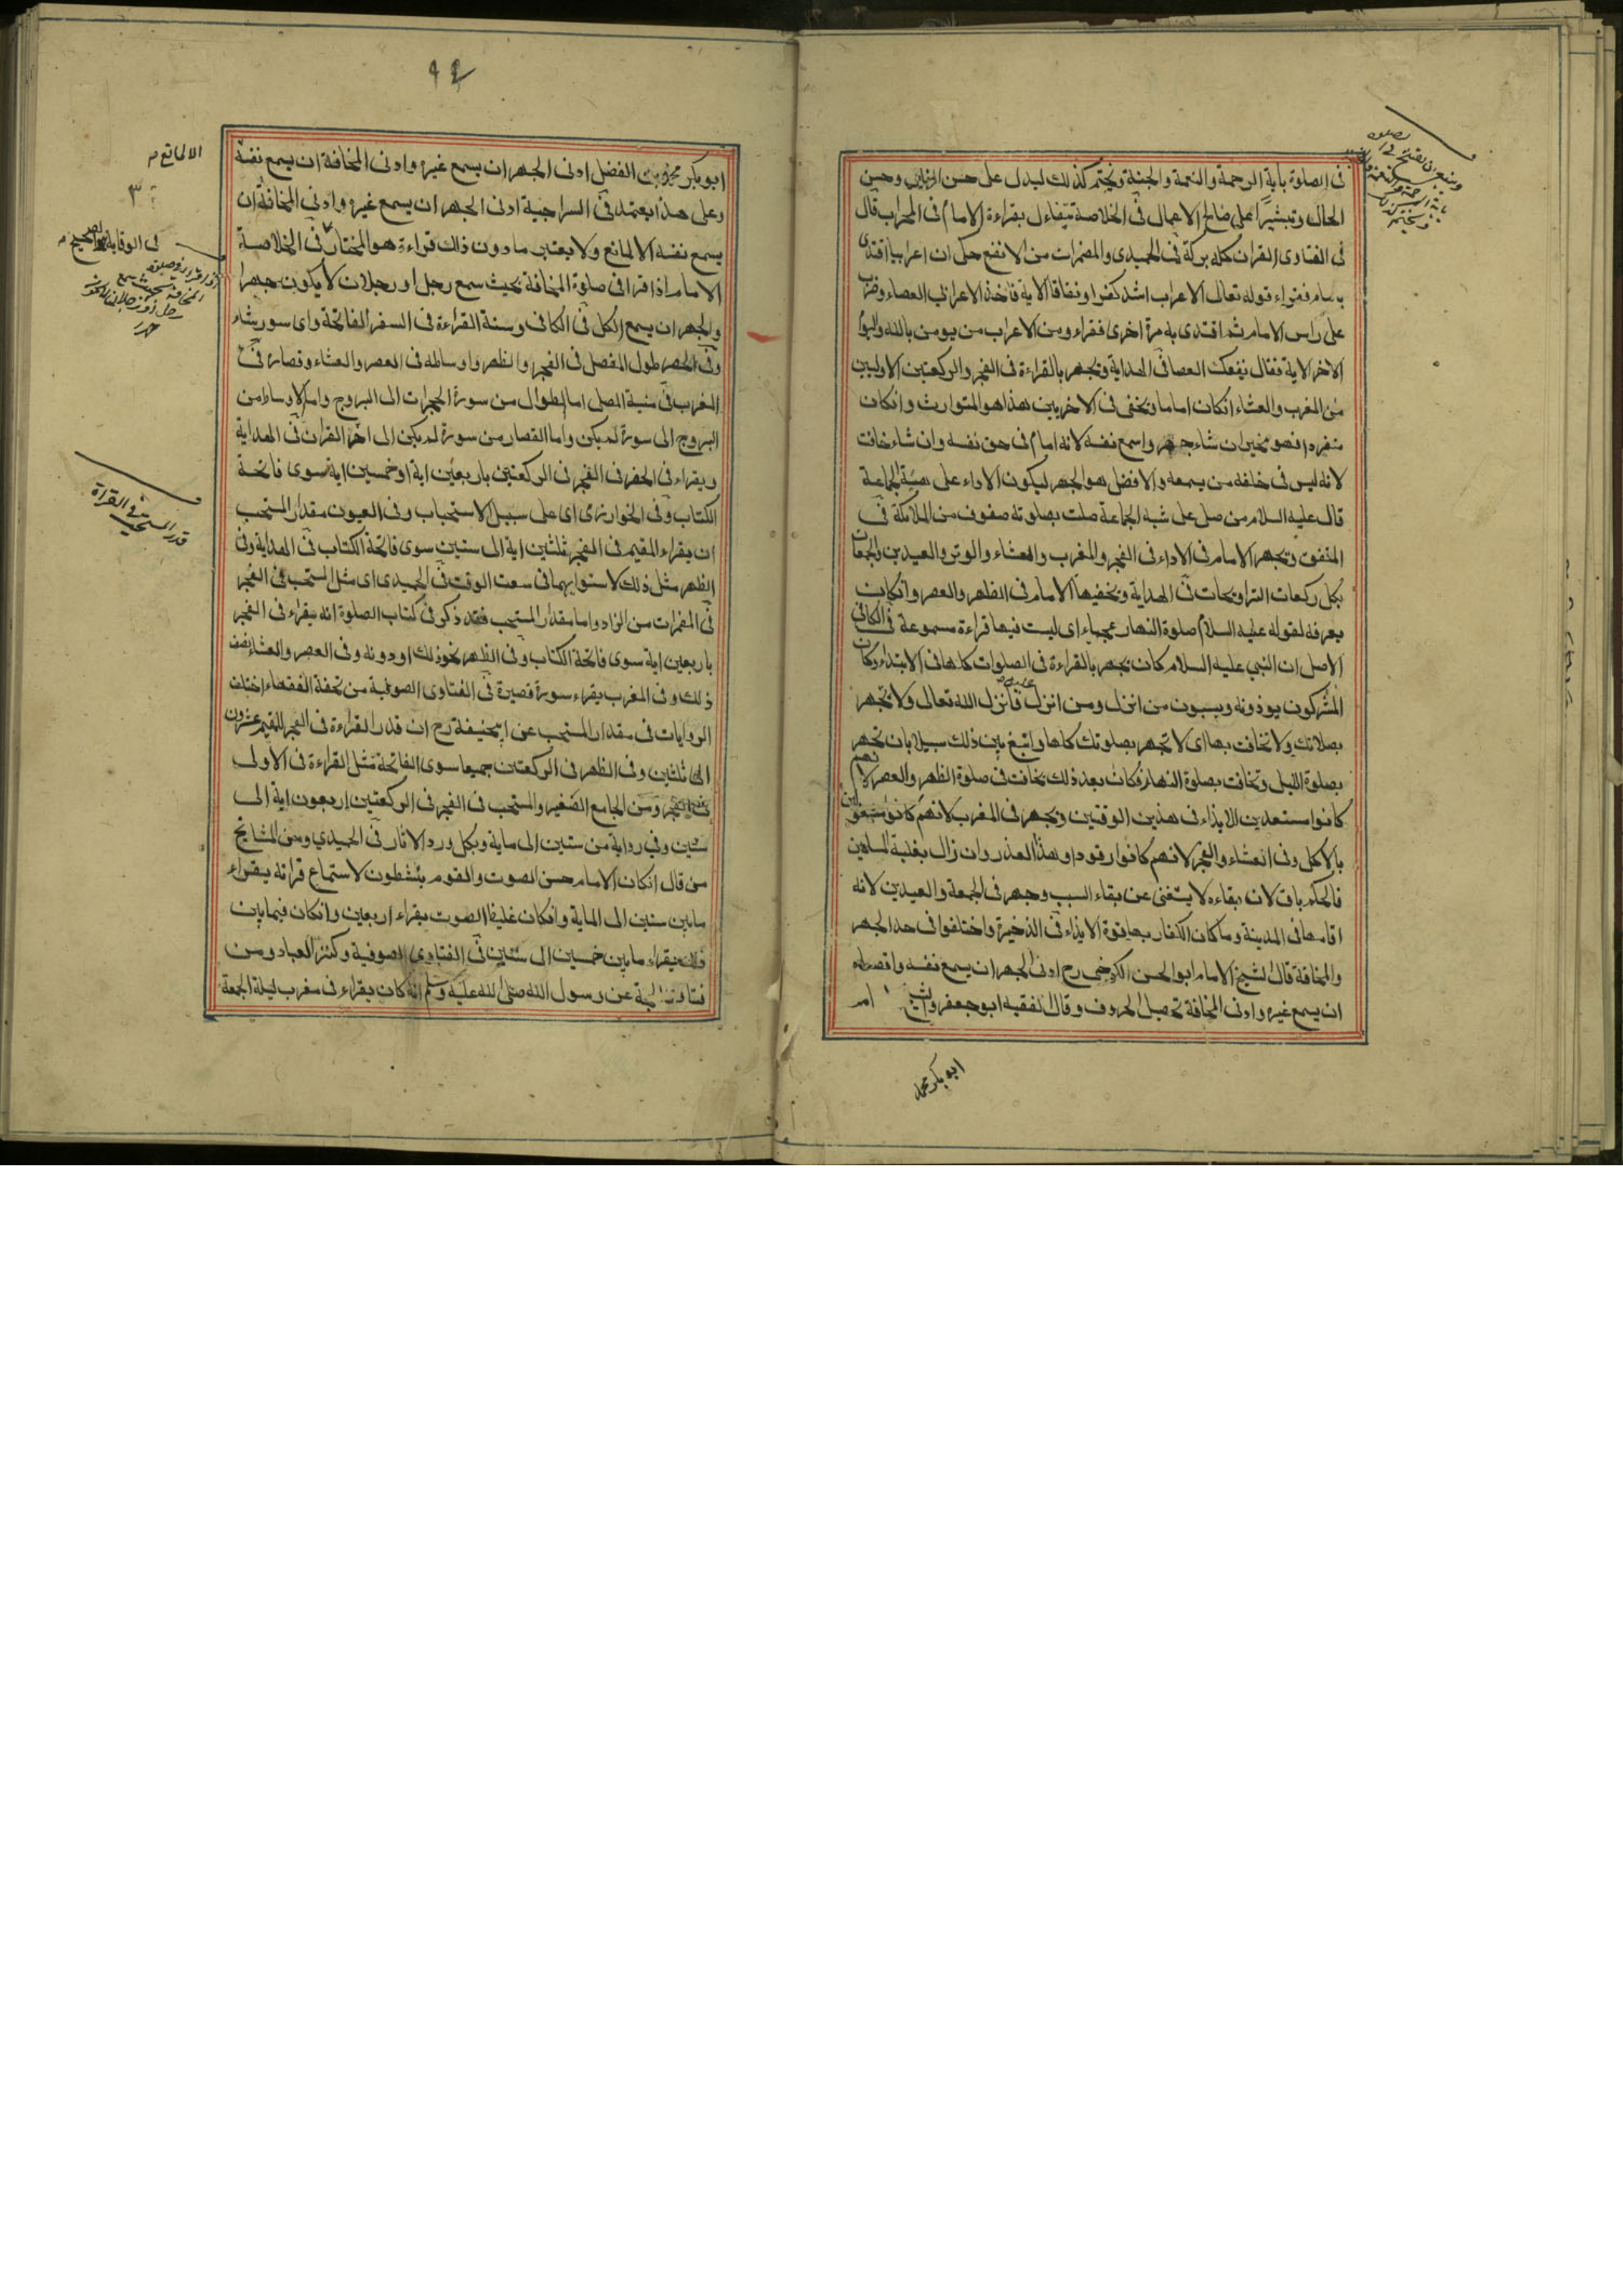 في الصلوة باية الرحمة والنعمة والجنة ويختم كذلك ليدل على حسن وحسن
الحال وتبشيرا على صالح الاعمال في الخلاصة يتفاءل بقراءة الامام في المحراب قال
في الفتاوى القران كله بركة في الحميدى والمضمرات من الانفع حكى ان اعرابيا اقتدى
بامام فقراء قوله تعالى الاعراب اشد كفرا ونفاقا الاية فاخذ الاعرابي العصاء وضرب
على راس الامام ثم اقتدى به مرة اخرى فقراء ومن الاعراب من يومن بالله واليوم
الاخر الاية فقال نفعك العصا في الهداية ويجهر بالقراءة في الفجر والركعتين الاوليين
من المغرب والعشاء انكان اماما ويخفى في الاخريين هذا هو المتوارث وانكان
منفردا فهو مخير ان شاء جهر واسمع نفسه لانه امام في حق نفسه وان شاء خافت
لانه ليس في خلفه من يسمعه والافضل هو الجهر ليكون الاداء على هيئة الجماعة
قال عليه السلام من صلى على شبه الجماعة صلت بصلوته صفوف من الملائكة في
المتفق ويجهر الامام في الاداء في الفجر والمغرب والعشاء والوتر والعيدين والجمعات
بكل ركعات التراويحات في الهداية ويخفيها الامام في الظهر والعصر وانكانت
بعرفة لقوله عليه السلام صلوة النهار عجماء اى ليست فيها قراءة مسموعة في الكافى
الاصل ان النبي عليه السلام كان يجهر بالقراءة في الصلوات كلها في الابتداء وكان
المشركون يوذونه ويسبون من انزل ومن انزل عليه فانزل الله تعالى ولا تجهر
بصلاتك ولا تخافت بها اى لا تجهر بصلوتك كلها وابتغ بين ذلك سبيلا بان تجهر
بصلوة الليل وتخافت بصلوة النهار فكان بعد ذلك يخافت في صلوة الظهر والعصر لانهم
كانوا مستعدين للايذاء في هذين الوقتين ويجهر في المغرب لانهم كانوا مشغولين
بالاكل وفى العشاء والفجر لانهم كانوا رقودا وهذا العذر وان زال بغلبة المسلمين
فالحكم باق لان بقاءه لا يستغنى عن بقاء السبب وجهر في الجمعة والعيدين لانه
اقامها في المدينة وما كان الكفار بها قوة الايذاء في الذخيرة واختلفوا في حد الجهر
والمخافة قال الشيخ الامام ابو الحسن الكرخى رح ادنى الجهر ان يسمع نفسه واقصاه
ان يسمع غيره وادنى المخافة تحصيل الحروف وقال الفقيه ابو جعفر والشيخ الامام
ابو بكر محمد
ابو بكر محمد بن الفضل ادنى الجهر ان يسمع غيره وادنى المخافة ان يسمع نفسه
وعلى هذا يعتمد في السراجية ادنى الجهر ان يسمع غيره وادنى المخافة ان
يسمع نفسه الا لمانع ولا يعتبر مادون ذلك قراءة هو المختار في الخلاصة
الامام اذا قرا في صلوة المخافة بحيث سمع رجل او رجلان لا يكون جهرا
والجهر ان يسمع الكل في الكافى وسنة القراءة في السفر الفاتحة واى سور شاء
وفى الحضر طول المفصل في الفجر والظهر واوساطه في العصر والعشاء وقصاره في
المغرب في منية المصلى اما الطوال من سورة الحجرات الى البروج واما الاوساط من
البروج الى سورة لم يكن واما القصار من سورة لم يكن الى اخر القران في الهداية
ويقراء في الحضر في الفجر في الركعتين باربعين اية او خمسين اية سوى فاتحة
الكتاب وفى الخوارزمى اى على سبيل الاستحباب وفى العيون مقدار المستحب
ان يقراء المقيم في الفجر ثلثين اية الى ستين سوى فاتحة الكتاب في الهداية وفى
الظهر مثل ذلك لاستوايهما في سعة الوقت في الحميدى اى مثل المستحب في الفجر
في المضمرات من الزاد واما مقدار المستحب فقد ذكر في كتاب الصلوة انه يقراء في الفجر
باربعين اية سوى فاتحة الكتاب وفى الظهر نحو ذلك او دونه وفى العصر والعشاء نصف
ذلك وفى المغرب يقراء سورة قصيرة في الفتاوى الصوفية من تحفة الفقهاء اختلف
الروايات في مقدار المستحب عن ابيحنيفة رح ان قدر القراءة في الفجر للمقيم عشرون
الى ثلثين وفى الظهر في الركعتين جميعا سوى الفاتحة مثل القراءة في الاولى
من الفجر ومن الجامع الصغير والمستحب في الفجر في الركعتين اربعون اية الى
ستين وفي رواية من ستين الى ماية وبكل ورد الاثار في الحميدي ومن المشايخ
من قال انكان الامام حسن الصوت والقوم ينشطون لاستماع قراته يقراء
مابين ستين الى الماية وانكان غليظ الصوت يقراء اربعين وانكان فيما بين
ذلك يقراء مابين خمسين الى ستين في الفتاوى الصوفية وكنز العباد ومن
فتاوى الحجة عن رسول الله صلى الله عليه وسلم انه كان يقراء في مغرب ليلة الجمعة
الا لمانع م
٣
في الوقاية هو الصحيح م
رجل او رجلان
قدر المستحب في القراة